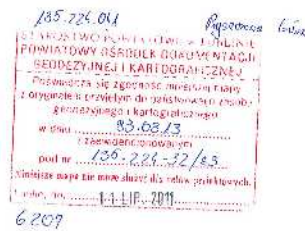 135.224.041
STAROSTWO POWIATOWE w LUBLINIE
POWIATOWY OŚRODEK DOKUMENTACJI
GEODEZYJNEJ I KARTOGRAFICZNEJ
Poświadcza się zgodność niniejszej mapy
z oryginałem przyjętym do państwowego zasobu
geodezyjnego i kartograficznego
w dniu 83.03.13
i zaewidencjonowanym
pod nr 135.224-32/83
Niniejsza mapa nie może służyć dla celów projektowych.
dn. 11 LIP. 2011
6209